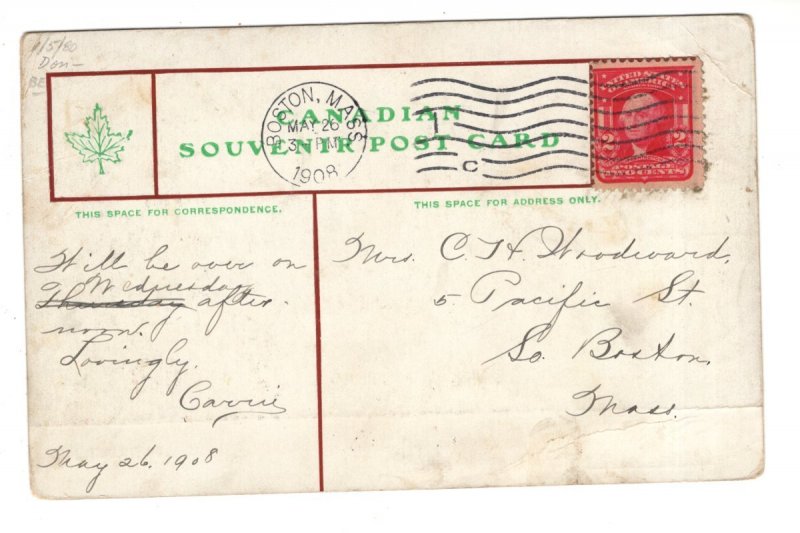 1/5/80
Don-
BE
CANADIAN
SOUVENIR POST CARD
BOSTON, MASS
MAY 26
3 PM
1908
L
C
UNITED STATES
2 2
POSTAGE
TWO CENTS
THIS SPACE FOR CORRESPONDENCE.
THIS SPACE FOR ADDRESS ONLY.
Will be over on
Wednesday
Thursday after-
noon.
Lovingly.
Carrie
May 26. 1908
Mrs. C. H. Woodward,
5 Pacific St.
So. Boston,
Mass.